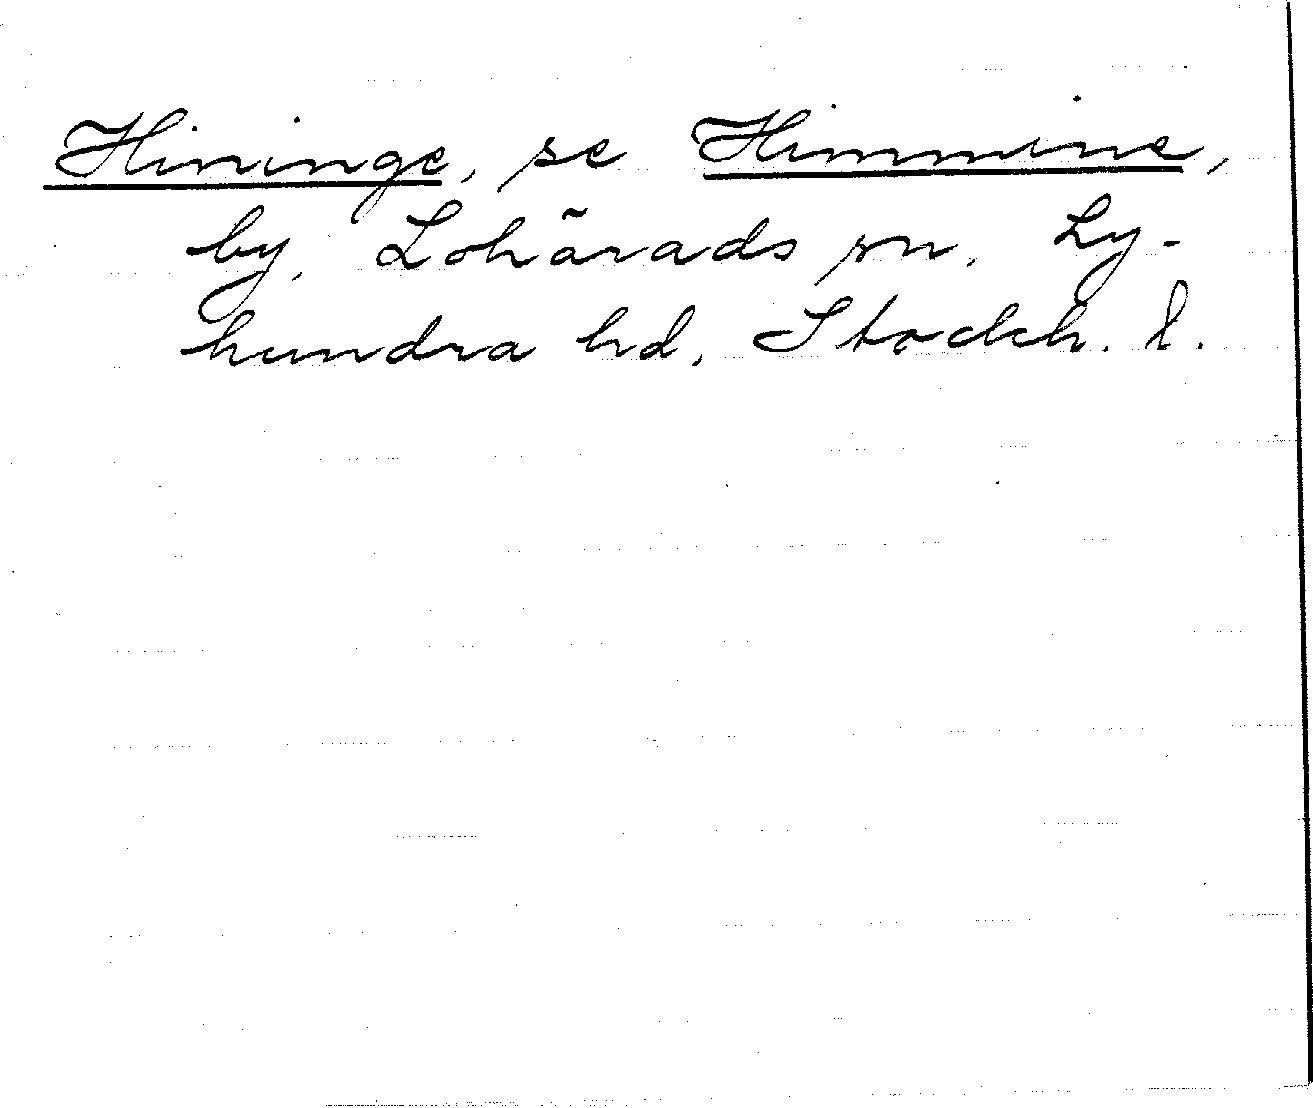 Hininge, se Himmine,
by, Lohärads sn. Ly-
hundra hd, Stockh. l.